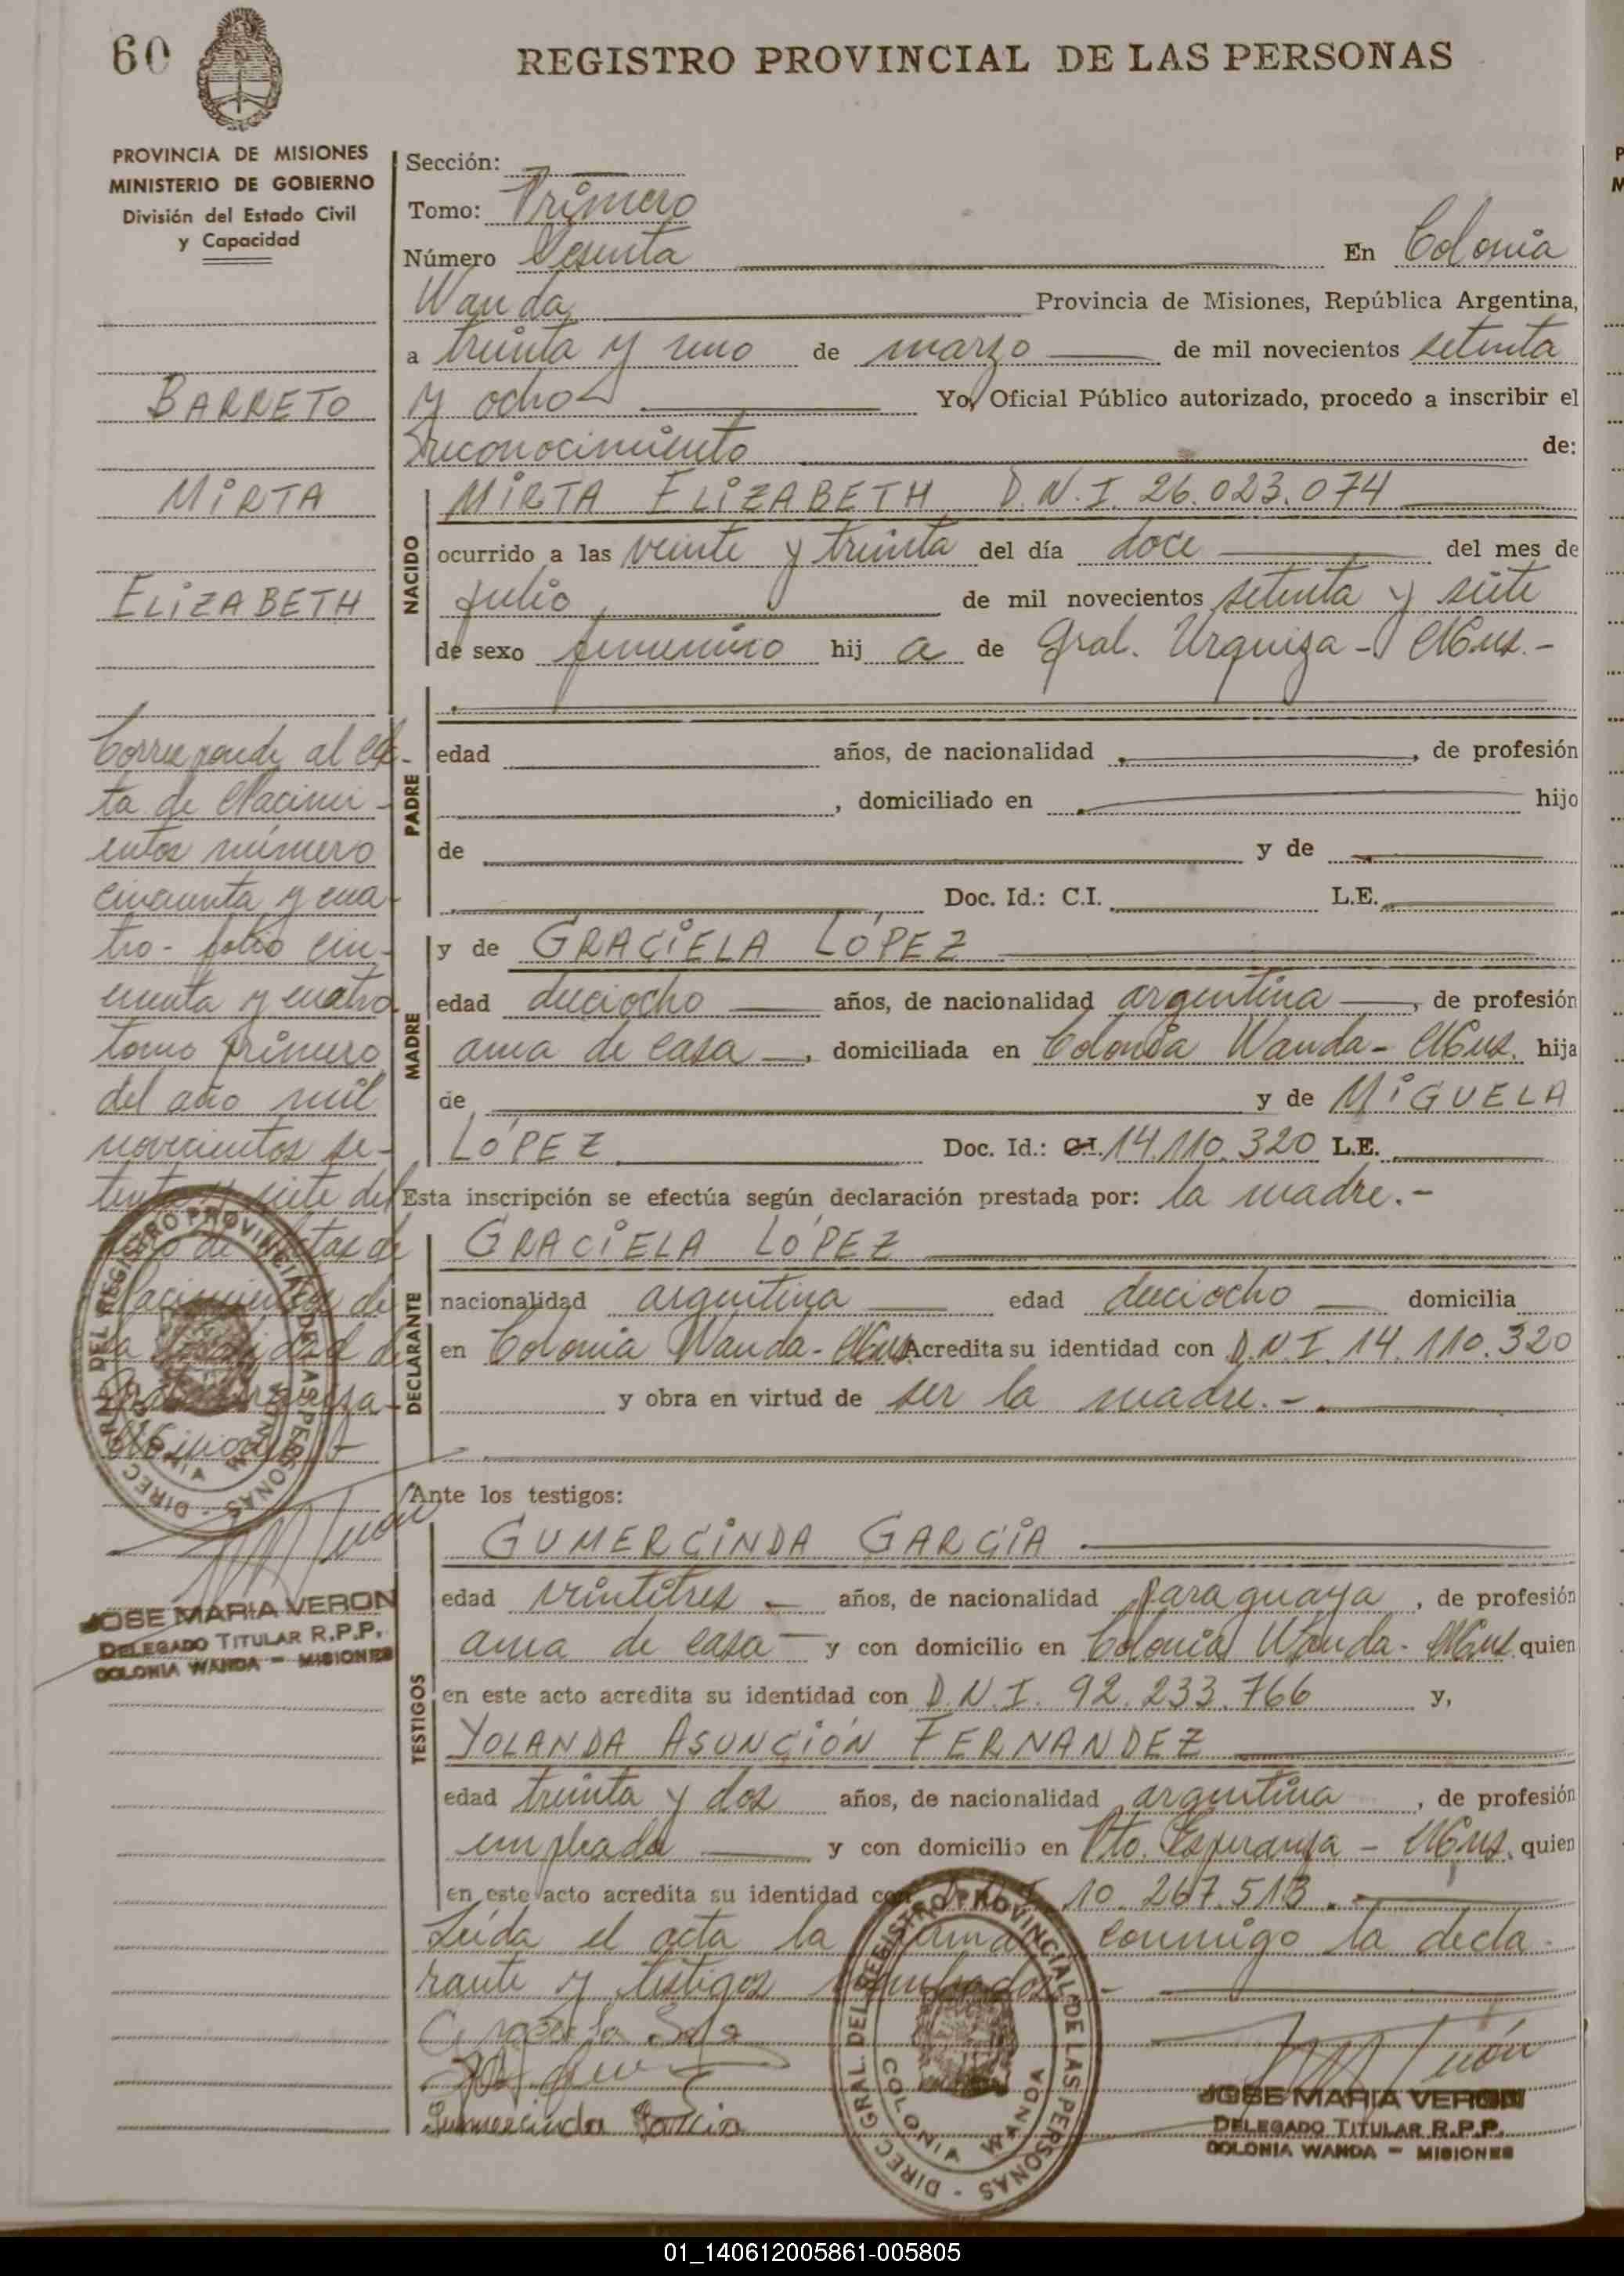 60
REGISTRO PROVINCIAL DE LAS PERSONAS
PROVINCIA DE MISIONES
MINISTERIO DE GOBIERNO
División del Estado Civil
y Capacidad
BARRETO
MIRTA
ELIZABETH
Corresponde al Ac-
ta de Nacimi-
entos número
cincuenta y cua-
tro - folio cin-
cuenta y cuatro
tomo primero
del año mil
novecientos se-
tenta y siete del
de Actas de
Nacimientos de
la localidad de
Misiones.-
JOSE MARIA VERON
DELEGADO TITULAR R.P.P.
COLONIA WANDA - MISIONES
Sección:
Tomo: Primero
Número Sesenta En Colonia
Wanda Provincia de Misiones, República Argentina,
a treinta y uno de marzo de mil novecientos setenta
y ocho Yo, Oficial Público autorizado, procedo a inscribir el
Reconocimiento de:
NACIDO
MIRTA ELIZABETH D.N.I. 26.023.074
ocurrido a las veinte y treinta del día doce del mes de
julio de mil novecientos setenta y siete
de sexo femenino hij a de Gral. Urquiza - Mnes.-
PADRE
edad años, de nacionalidad , de profesión
, domiciliado en hijo
de y de
Doc. Id.: C.I. L.E.
MADRE
y de GRACIELA LÓPEZ
edad dieciocho años, de nacionalidad argentina , de profesión
ama de casa , domiciliada en Colonia Wanda - Mnes. hija
de y de MIGUELA
LÓPEZ Doc. Id.: C.I. 14.110.320 L.E.
Esta inscripción se efectúa según declaración prestada por: la madre.-
DECLARANTE
GRACIELA LÓPEZ
nacionalidad argentina edad dieciocho domicilia
en Colonia Wanda - Mnes. Acredita su identidad con D.N.I. 14.110.320
y obra en virtud de ser la madre.-
Ante los testigos:
TESTIGOS
GUMERCINDA GARCÍA
edad veintitres años, de nacionalidad paraguaya , de profesión
ama de casa y con domicilio en Colonia Wanda - Mnes. quien
en este acto acredita su identidad con D.N.I. 92.233.766 y,
YOLANDA ASUNCIÓN FERNANDEZ
edad treinta y dos años, de nacionalidad argentina , de profesión
empleada y con domicilio en Pto. Esperanza - Mnes. quien
en este acto acredita su identidad con D.N.I. 10.267.513.-
Leída el acta la firman conmigo la decla-
rante y testigos nombrados.-
Gumercinda Garcia
DIREC. GRAL. DEL REGISTRO PROVINCIAL DE LAS PERSONAS
COLONIA WANDA
JOSE MARIA VERON
DELEGADO TITULAR R.P.P.
COLONIA WANDA - MISIONES
01_140612005861-005805